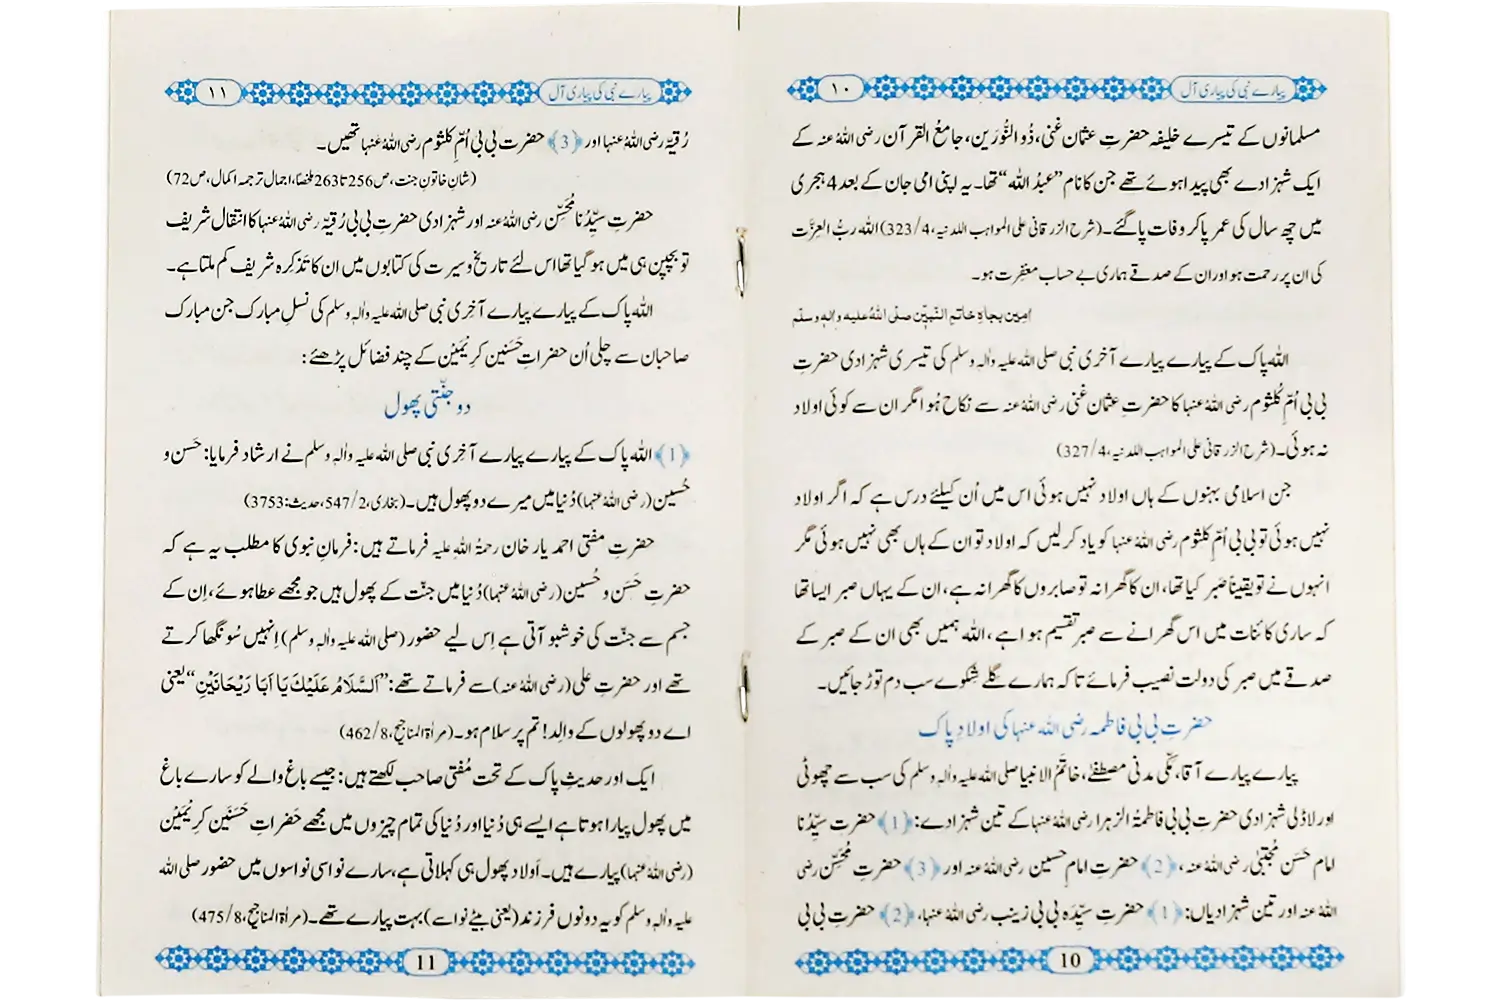 پیارے نبی کی پیاری آل
۱۰
مسلمانوں کے تیسرے خلیفہ حضرتِ عثمان غنی، ذُو النُّورَین، جامعُ القرآن رضی اللہُ عنہ کے
ایک شہزادے بھی پیدا ہوئے تھے جن کا نام ”عبدُ اللہ“ تھا۔ یہ اپنی امی جان کے بعد 4 ہجری
میں چھ سال کی عمر پاکر وفات پاگئے۔ (شرح الزرقانی علی المواہب اللدنیہ، 4/323) اللہ ربُّ العِزّت
کی ان پر رحمت ہو اور ان کے صدقے ہماری بے حساب مغفِرت ہو۔
اٰمِین بِجاہِ خاتمِ النَّبِیّٖن صلَّی اللہُ علیه واٰلهٖ وسلَّم
اللہ پاک کے پیارے پیارے آخری نبی صلی اللہ علیہ واٰلہٖ وسلم کی تیسری شہزادی حضرتِ
بی بی اُمِّ کُلثوم رضی اللہُ عنہا کا حضرتِ عثمان غنی رضی اللہُ عنہ سے نکاح ہُوا مگر ان سے کوئی اولاد
نہ ہوئی۔ (شرح الزرقانی علی المواہب اللدنیہ، 4/327)
جن اسلامی بہنوں کے ہاں اولاد نہیں ہوئی اس میں اُن کیلئے درس ہے کہ اگر اولاد
نہیں ہوئی تو بی بی اُمِّ کلثوم رضی اللہُ عنہا کو یاد کرلیں کہ اولاد تو ان کے ہاں بھی نہیں ہوئی مگر
انہوں نے تو یقیناً صَبر کیا تھا، ان کا گھرانہ تو صابروں کا گھرانہ ہے، ان کے یہاں صبر ایسا تھا
کہ ساری کائنات میں اس گھرانے سے صبر تقسیم ہوا ہے، اللہ ہمیں بھی ان کے صبر کے
صدقے میں صبر کی دولت نصیب فرمائے تاکہ ہمارے گلے شِکوے سب دم توڑ جائیں۔
حضرتِ بی بی فاطمہ رضی اللہ عنہا کی اولادِ پاک
پیارے پیارے آقا، مکّی مدنی مصطفےٰ، خاتَمُ الانبیا صلی اللہ علیہ واٰلہٖ وسلم کی سب سے چھوٹی
اور لاڈلی شہزادی حضرتِ بی بی فاطمۃُ الزہرا رضی اللہُ عنہا کے تین شہزادے: ﴿1﴾ حضرتِ سیِّدُنا
امام حَسَن مُجتبیٰ رضی اللہُ عنہ، ﴿2﴾ حضرتِ امامِ حسین رضی اللہُ عنہ اور ﴿3﴾ حضرتِ مُحَسِّن رضی
اللہُ عنہ اور تین شہزادیاں: ﴿1﴾ حضرتِ سیِّدَہ بی بی زینب رضی اللہُ عنہا، ﴿2﴾ حضرتِ بی بی
10
پیارے نبی کی پیاری آل
۱۱
رُقیّہ رضی اللہُ عنہا اور ﴿3﴾ حضرت بی بی اُمِّ کلثوم رضی اللہُ عنہا تھیں۔
(شانِ خاتونِ جنت، ص256 تا 263 ملخصاً، اجمال ترجمہ اکمال، ص72)
حضرتِ سیِّدُنا مُحَسِّن رضی اللہُ عنہ اور شہزادی حضرتِ بی بی رُقیّہ رضی اللہُ عنہا کا انتقال شریف
تو بچپن ہی میں ہو گیا تھا اس لئے تاریخ و سیرت کی کتابوں میں ان کا تَذکِرہ شریف کم ملتا ہے۔
اللہ پاک کے پیارے پیارے آخِری نبی صلی اللہ علیہ واٰلہٖ وسلم کی نسلِ مبارک جن مبارک
صاحبان سے چلی اُن حضراتِ حَسَنین کریمَیْن کے چند فضائل پڑھئے:
دو جنّتی پھول
﴿1﴾ اللہ پاک کے پیارے پیارے آخِری نبی صلی اللہ علیہ واٰلہٖ وسلم نے ارشاد فرمایا: حَسَن و
حُسین (رضی اللہُ عنہما) دُنیا میں میرے دو پھول ہیں۔ (بخاری، 2/547، حدیث: 3753)
حضرتِ مفتی احمد یار خان رحمۃُ اللہِ علیہ فرماتے ہیں: فرمانِ نبوی کا مطلب یہ ہے کہ
حضرتِ حَسَن و حُسین (رضی اللہُ عنہما) دُنیا میں جنّت کے پھول ہیں جو مجھے عطا ہوئے، اِن کے
جسم سے جنّت کی خوشبو آتی ہے اِس لیے حضور (صلی اللہ علیہ واٰلہٖ وسلم) اِنہیں سُونگھا کرتے
تھے اور حضرتِ علی (رضی اللہُ عنہ) سے فرماتے تھے: ”اَلسَّلَامُ عَلَیْكَ یَا اَبَا رَیْحَانَیْنِ“ یعنی
اے دو پھولوں کے والِد! تم پر سلام ہو۔ (مراٰۃ المناجیح، 8/462)
ایک اور حدیثِ پاک کے تحت مُفتی صاحب لکھتے ہیں: جیسے باغ والے کو سارے باغ
میں پھول پیارا ہوتا ہے ایسے ہی دُنیا اور دُنیا کی تمام چیزوں میں مجھے حَضراتِ حَسَنَین کرِیمَیْن
(رضی اللہُ عنہما) پیارے ہیں۔ اَولاد پھول ہی کہلاتی ہے، سارے نواسی نواسوں میں حضور صلی اللہ
علیہ واٰلہٖ وسلم کو یہ دونوں فرزند (یعنی بیٹے نواسے) بہت پیارے تھے۔ (مراٰۃ المناجیح، 8/475)
11